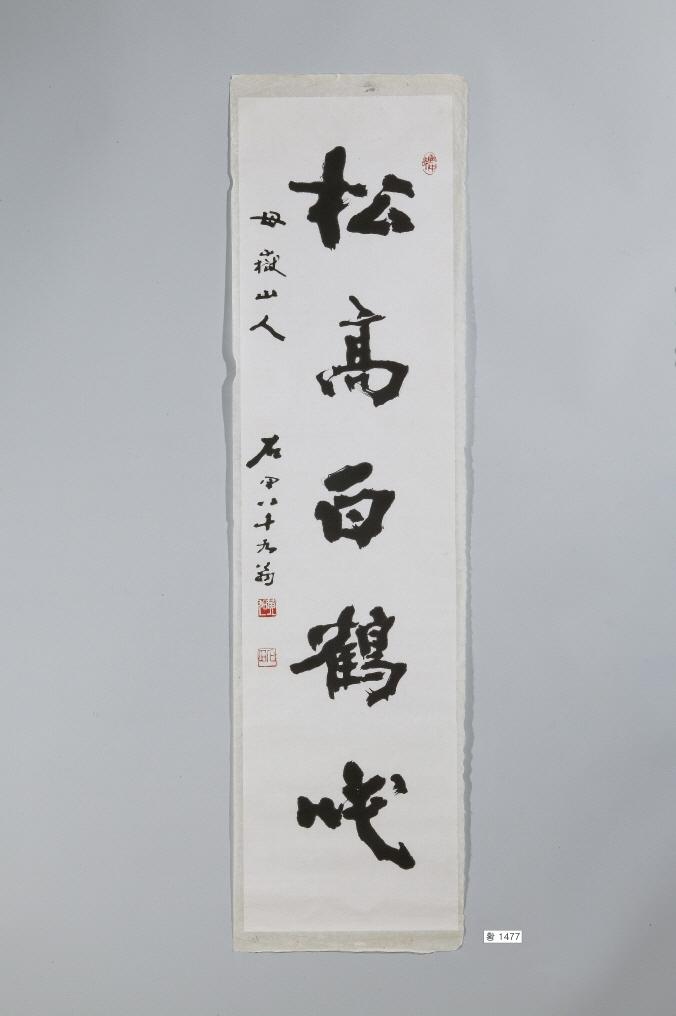 松高白鶴眠
母嶽山人 石田八十九翁
황 1477